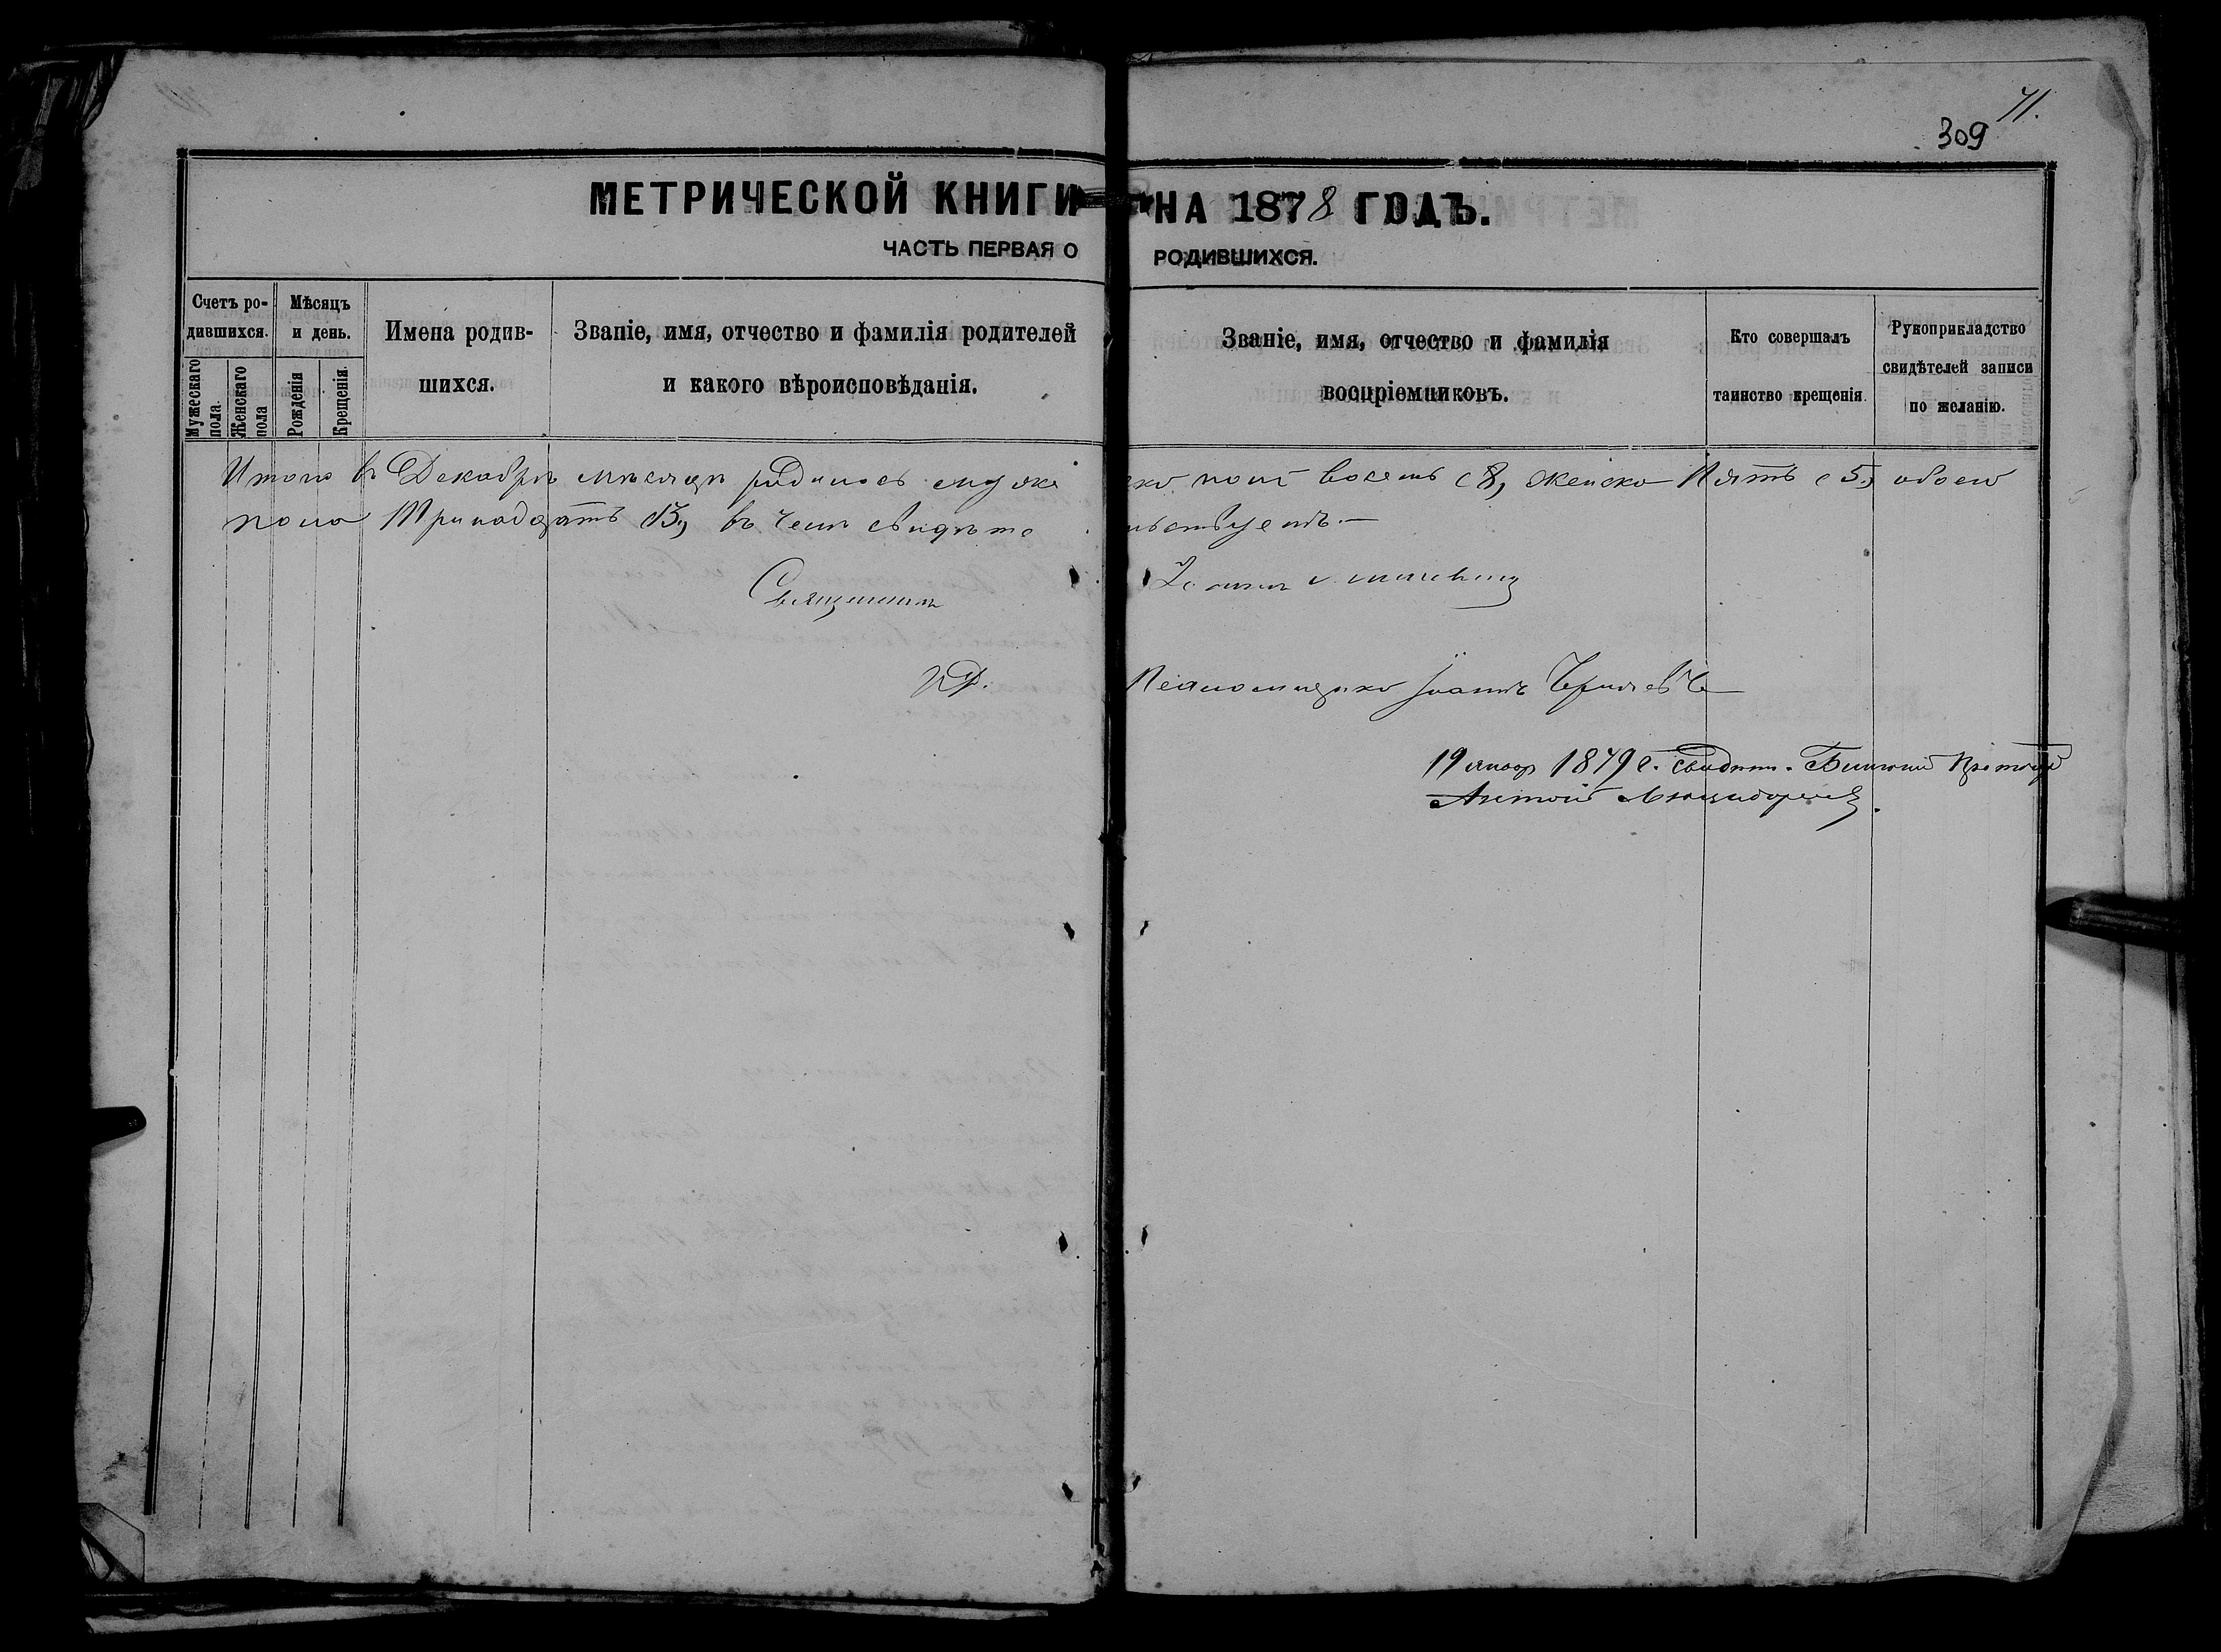 71.
309
МЕТРИЧЕСКОЙ КНИГИ НА 1878 ГОДЪ.
ЧАСТЬ ПЕРВАЯ О РОДИВШИХСЯ.
Счетъ родившихся.
Мужескаго пола.
Женскаго пола
Мѣсяцъ и день.
Рожденія
Крещенія.
Имена родившихся.
Званіе, имя, отчество и фамилія родителей
и какого вѣроисповѣданія.
Званіе, имя, отчество и фамилія
воспріемниковъ.
Кто совершалъ
таинство крещенія.
Рукоприкладство
свидѣтелей записи
по желанію.
Итого въ Декабрѣ мѣсяцѣ родилось мужеско пола восемь (8) женско Пять (5) обоего
пола Тринадцать 13) въ чемъ свидѣтельствуемъ.—
Священникъ
И.Д. Псаломщика Іоаннъ
19 1879 г.
Антоній